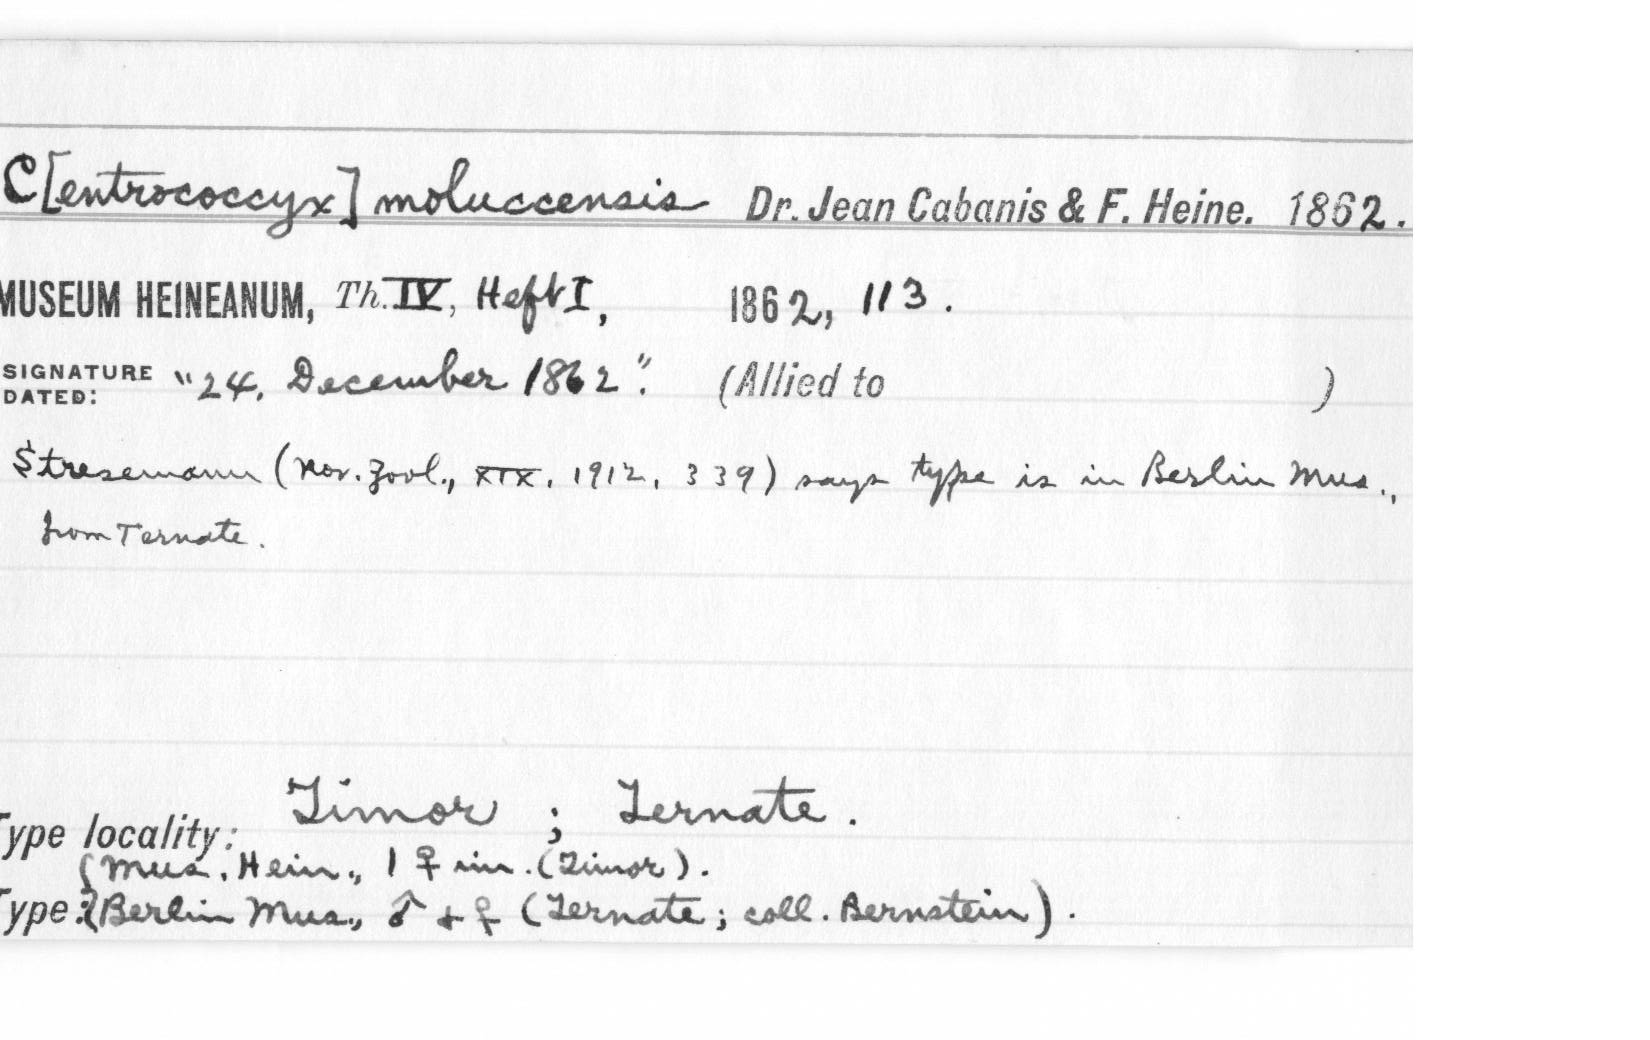 C[entrococcyx] moluccensis Dr. Jean Cabanis & F. Heine. 1862.
MUSEUM HEINEANUM, Th. IV, Heft I, 1862, 113.
SIGNATURE DATED: "24. December 1862". (Allied to )
Stresemann (Nov. Zool., XIX, 1912, 339) says type is in Berlin Mus.,
from Ternate.
Type locality: Timor ; Ternate.
Mus. Hein., 1 ♀ im. (Timor).
Type: {Berlin Mus., ♂ + ♀ (Ternate; coll. Bernstein).